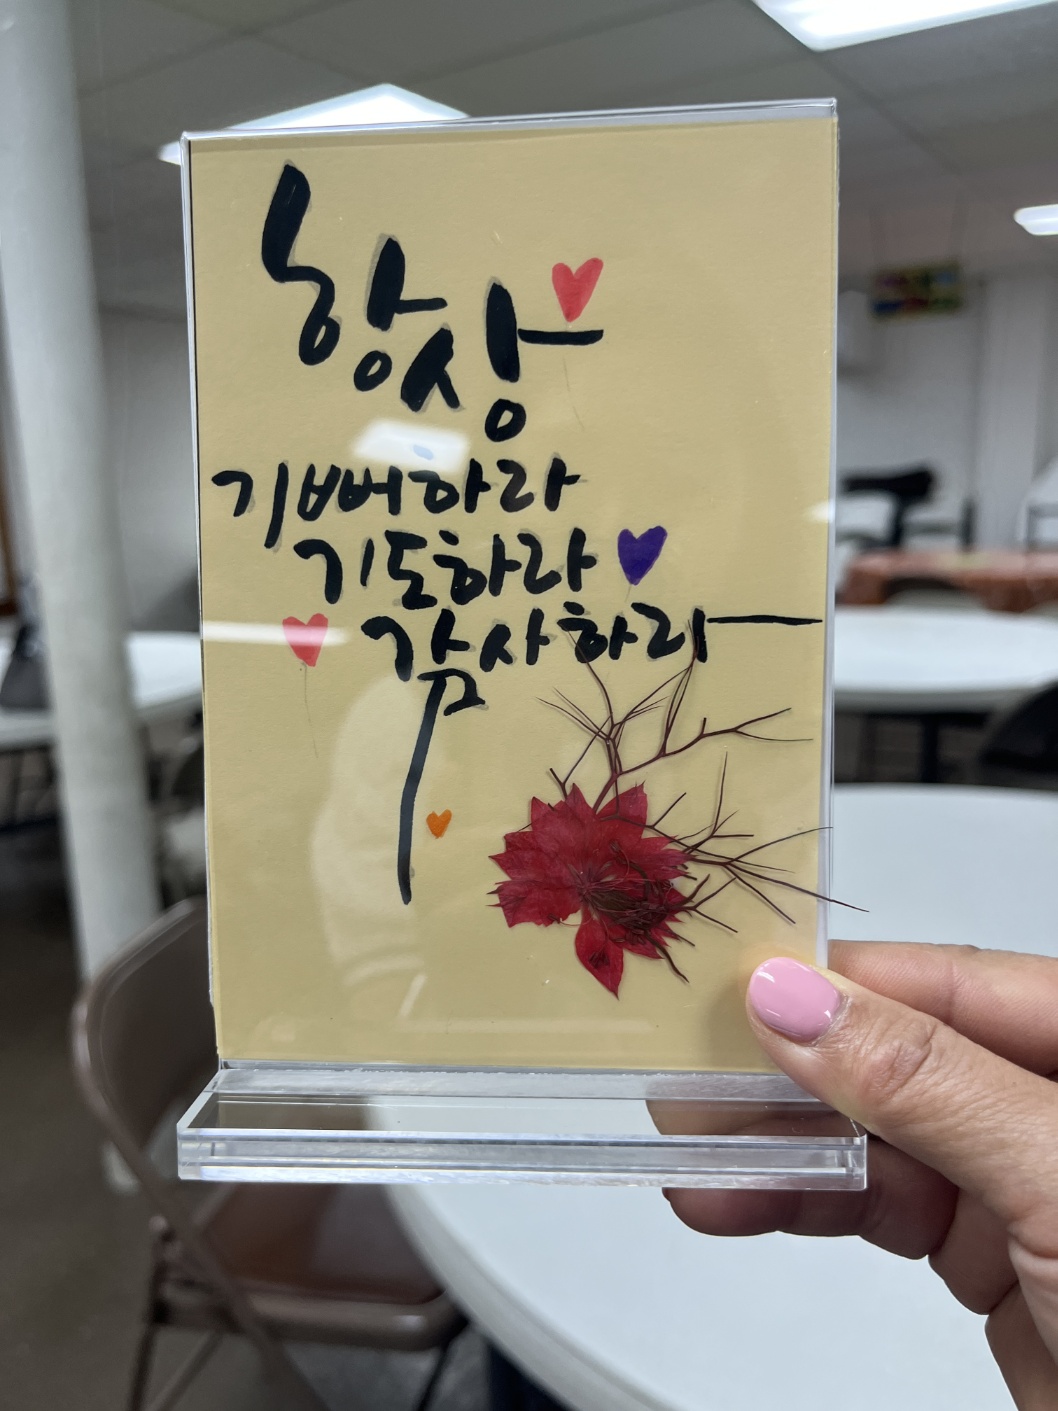 항상
기뻐하라
기도하라
감사하라